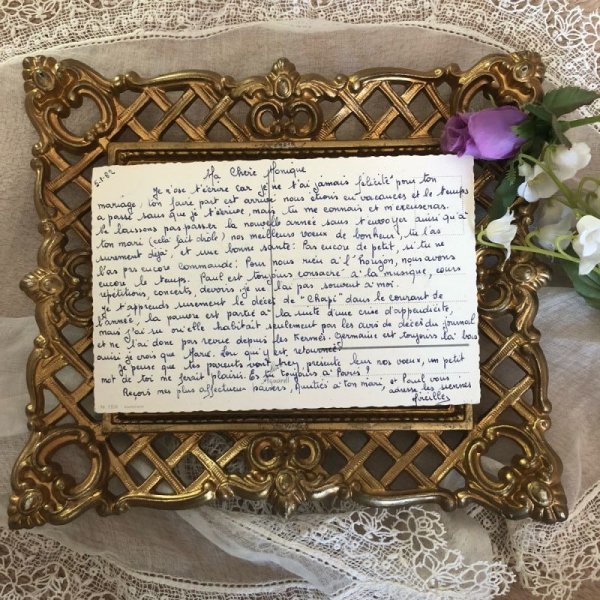 5-1-82
Ma Cherie Monique
Je n'ose t'écrire car je ne t'ai jamais félicité pour ton
mariage, ton faire part est arrivé nous étions en vacances et le temps
a passé sans que je t'écrive, mais tu me connais et m'excuseras.
Je laissons pas passer la nouvelle année sans t'envoyer ainsi qu'à
ton mari (cela fait drôle) nos meilleurs voeux de bonheur, tu l'as
surement déjà, et une bonne santé. Pas encore de petit, si tu ne
l'as pas encore commandé. Pour nous rien à l'horizon, nous avons
encore le temps. Paul est toujours consacré à la musique, cours
répétitions, concerts, devoirs, je ne l'ai pas souvent à moi.
Je t'apprends surement le décès de "Chapi" dans le courant de
l'année, la pauvre est partie à la suite d'une crise d'appendicite,
mais j'ai su qu'elle habitait seulement par les avis de décès du journal
et ne l'ai donc pas revue depuis les Germain est toujours là bas
aussi je crois que Marie. Lou qui y est retournée.
Je pense que tes parents vont bien, présente leur nos voeux, un petit
mot de toi me ferait plaisir. Es tu toujours à Paris ?
Reçois mes plus affectueux baisers, amitiés à ton mari, et Paul vous
adresse les siennes